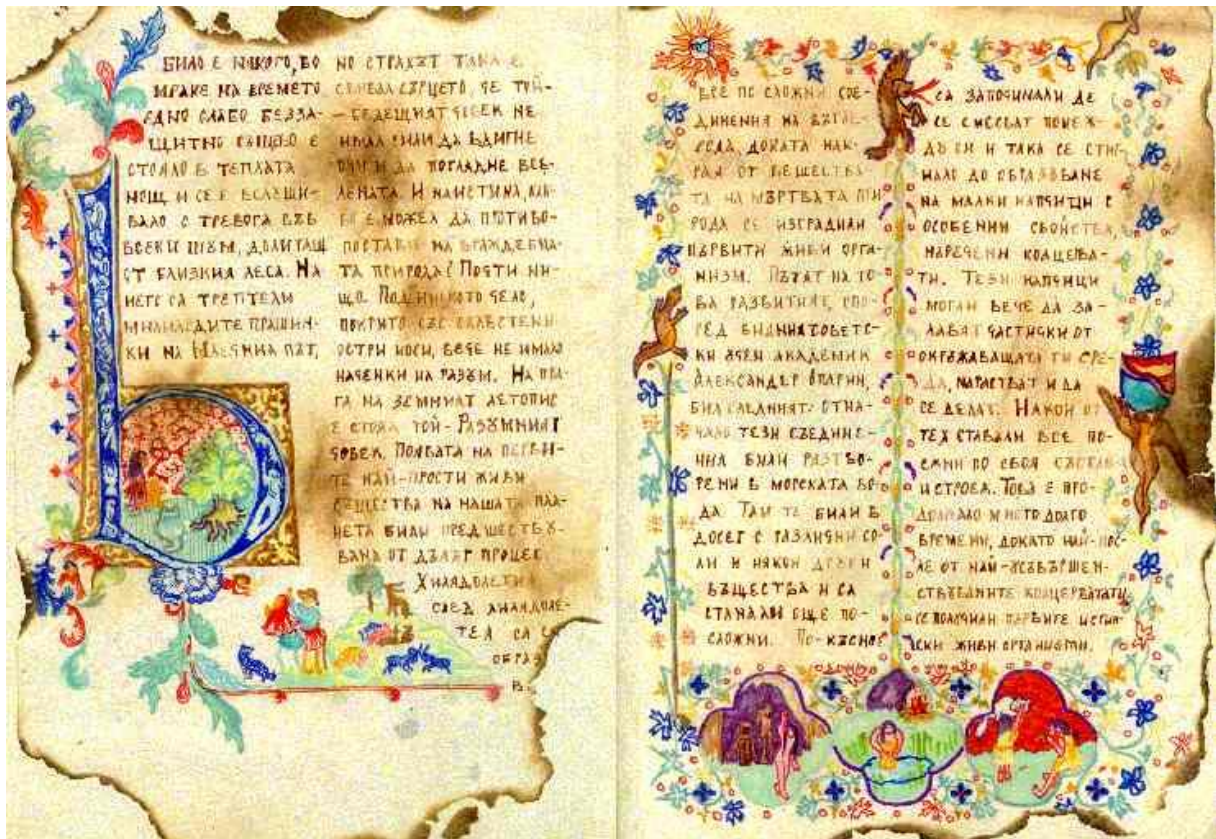 БИЛО Е НЯКОГА, ВО
МРАКЕ НА ВРЕМЕТО
ЕДНО СЛАБО БЕЗЗА-
ЩИТНО СЪЩЕСТВО Е
СТОЯЛО В ТЕПЛАТА
НОЩ И СЕ Е ВСЛУШИ-
ВАЛО С ТРЕВОГА ВЪВ
ВСЕКИ ШУМ, ДОЛИТАЩ
ОТ БЛИЗКИЯ ЛЕСА. НА
НЕГО СА ТРЕПТЕЛИ
МИЛИАРДИТЕ ПРАШИН-
КИ НА МЛЕЧНИЯ ПЪТ,
НО СТРАХЪТ ТАКА Е
СКОВАЛ СЪРЦЕТО, ЧЕ ТОЙ-
- БЪДЕЩИЯТ ЧОВЕК НЕ
ИМАЛ СИЛИ ДА ВДИГНЕ
ОЧИ И ДА ПОГЛЕДНЕ ВСЕ-
ЛЕНАТА. И НАИСТИНА, КАК-
ВО Е МОЖЕЛ ДА ПРОТИВО-
ПОСТАВИ НА ВРАЖДЕБНА-
ТА ПРИРОДА? ПОЧТИ НИ-
ЩО. ЧЕЛО,
ПОКРИТО СЪС СПЛЪСТЕНИ
ОСТРИ КОСИ, ВЕЧЕ НЕ ИМАЛО
НАЧЕНКИ НА РАЗУМ. НА ПРА-
ГА НА ЗЕМНИЯТ ЛЕТОПИС
Е СТОЯЛ ТОЙ - РАЗУМНИЯТ
ЧОВЕК. ПОЯВАТА НА ПЪРВИ-
ТЕ НАЙ-ПРОСТИ ЖИВИ
СЪЩЕСТВА НА НАШАТА ПЛА-
НЕТА БИЛИ ПРЕДШЕСТВУ-
ВАНА ОТ ДЪЛЪГ ПРОЦЕС.
ХИЛЯДОЛЕТИЯ
СЛЕД ХИЛЯДОЛЕ-
ТЕЯ СА С
ОБРАЗ
ВСЕ ПО СЛОЖНИ СЪЕ-
ДИНЕНИЯ НА ВЪГЛЕ-
РОДА, ДОКАТА НАК-
РАЯ ОТ ВЕЩЕСТВА-
ТА НА МЪРТВАТА ПРИ
РОДА СЕ ИЗГРАДИЛИ
ПЪРВИТИ ЖИВИ ОРГА-
НИЗМИ. ПЪТЯТ НА ТО-
ВА РАЗВИТИЕ, СПО-
РЕД ВИДНИЯ СОВЕТС-
КИ УЧЕН АКАДЕМИК
АЛЕКСАНДЕР ОПАРИН,
БИЛ СЛЕДНИЯТ: ОТНА-
ЧАЛО ТЕЗИ СЪЕДИНЕ-
НИЯ БИЛИ РАЗТВО-
РЕНИ В МОРСКАТА ВО-
ДА. ТАМ ТЕ БИЛИ В
ДОСЕГ С РАЗЛИЧНИ СО-
ЛИ И НЯКОИ ДРУГИ
ВЪЩЕСТВА И СА
СТАНАЛИ ОЩЕ ПО-
СЛОЖНИ. ПО-КЪСНО
СА ЗАПОЧИНАЛИ ДЕ
СЕ СМЕСВАТ ПОМЕЖ-
ДУ СИ И ТАКА СЕ СТИГ
НАЛО ДО ОБРАЗВВАНЕ
НА МАЛКИ КАПЧИЦИ С
ОСОБЕННИ СВОЙСТВА,
НАРЕЧЕНИ КОАЦЕРВА-
ТИ. ТЕЗИ КАПЧИЦИ
МОГЛИ ВЕЧЕ ДА ЗА-
ЛАВЯТ ЧАСТИЧКИ ОТ
ОКРЪЖАВАЩАТА ГИ СРЕ-
ДА, НАРАСТВАТ И ДА
СЕ ДЕЛЯТ. НЯКОИ ОТ
ТЯХ СТАВАЛИ ВСЕ ПО-
ПО СВОЯ СЪСТАВ
И СТРОЕЖ. ТОВА Е ПРО-
ДЪЛЖАЛО МНОГО ДЪЛГО
ВРЕМЕНИ, ДОКАТО НАЙ-ПОС-
ЛЕ ОТ НАЙ-УСЪВЪРШЕН-
СТВУВАНИТЕ КОАЦЕРВАТАТИ
СЕ ПОЛУЧИЛИ ПЪРВИТЕ ИСТИН-
СКИ ЖИВИ ОРГАНИЗМИ.